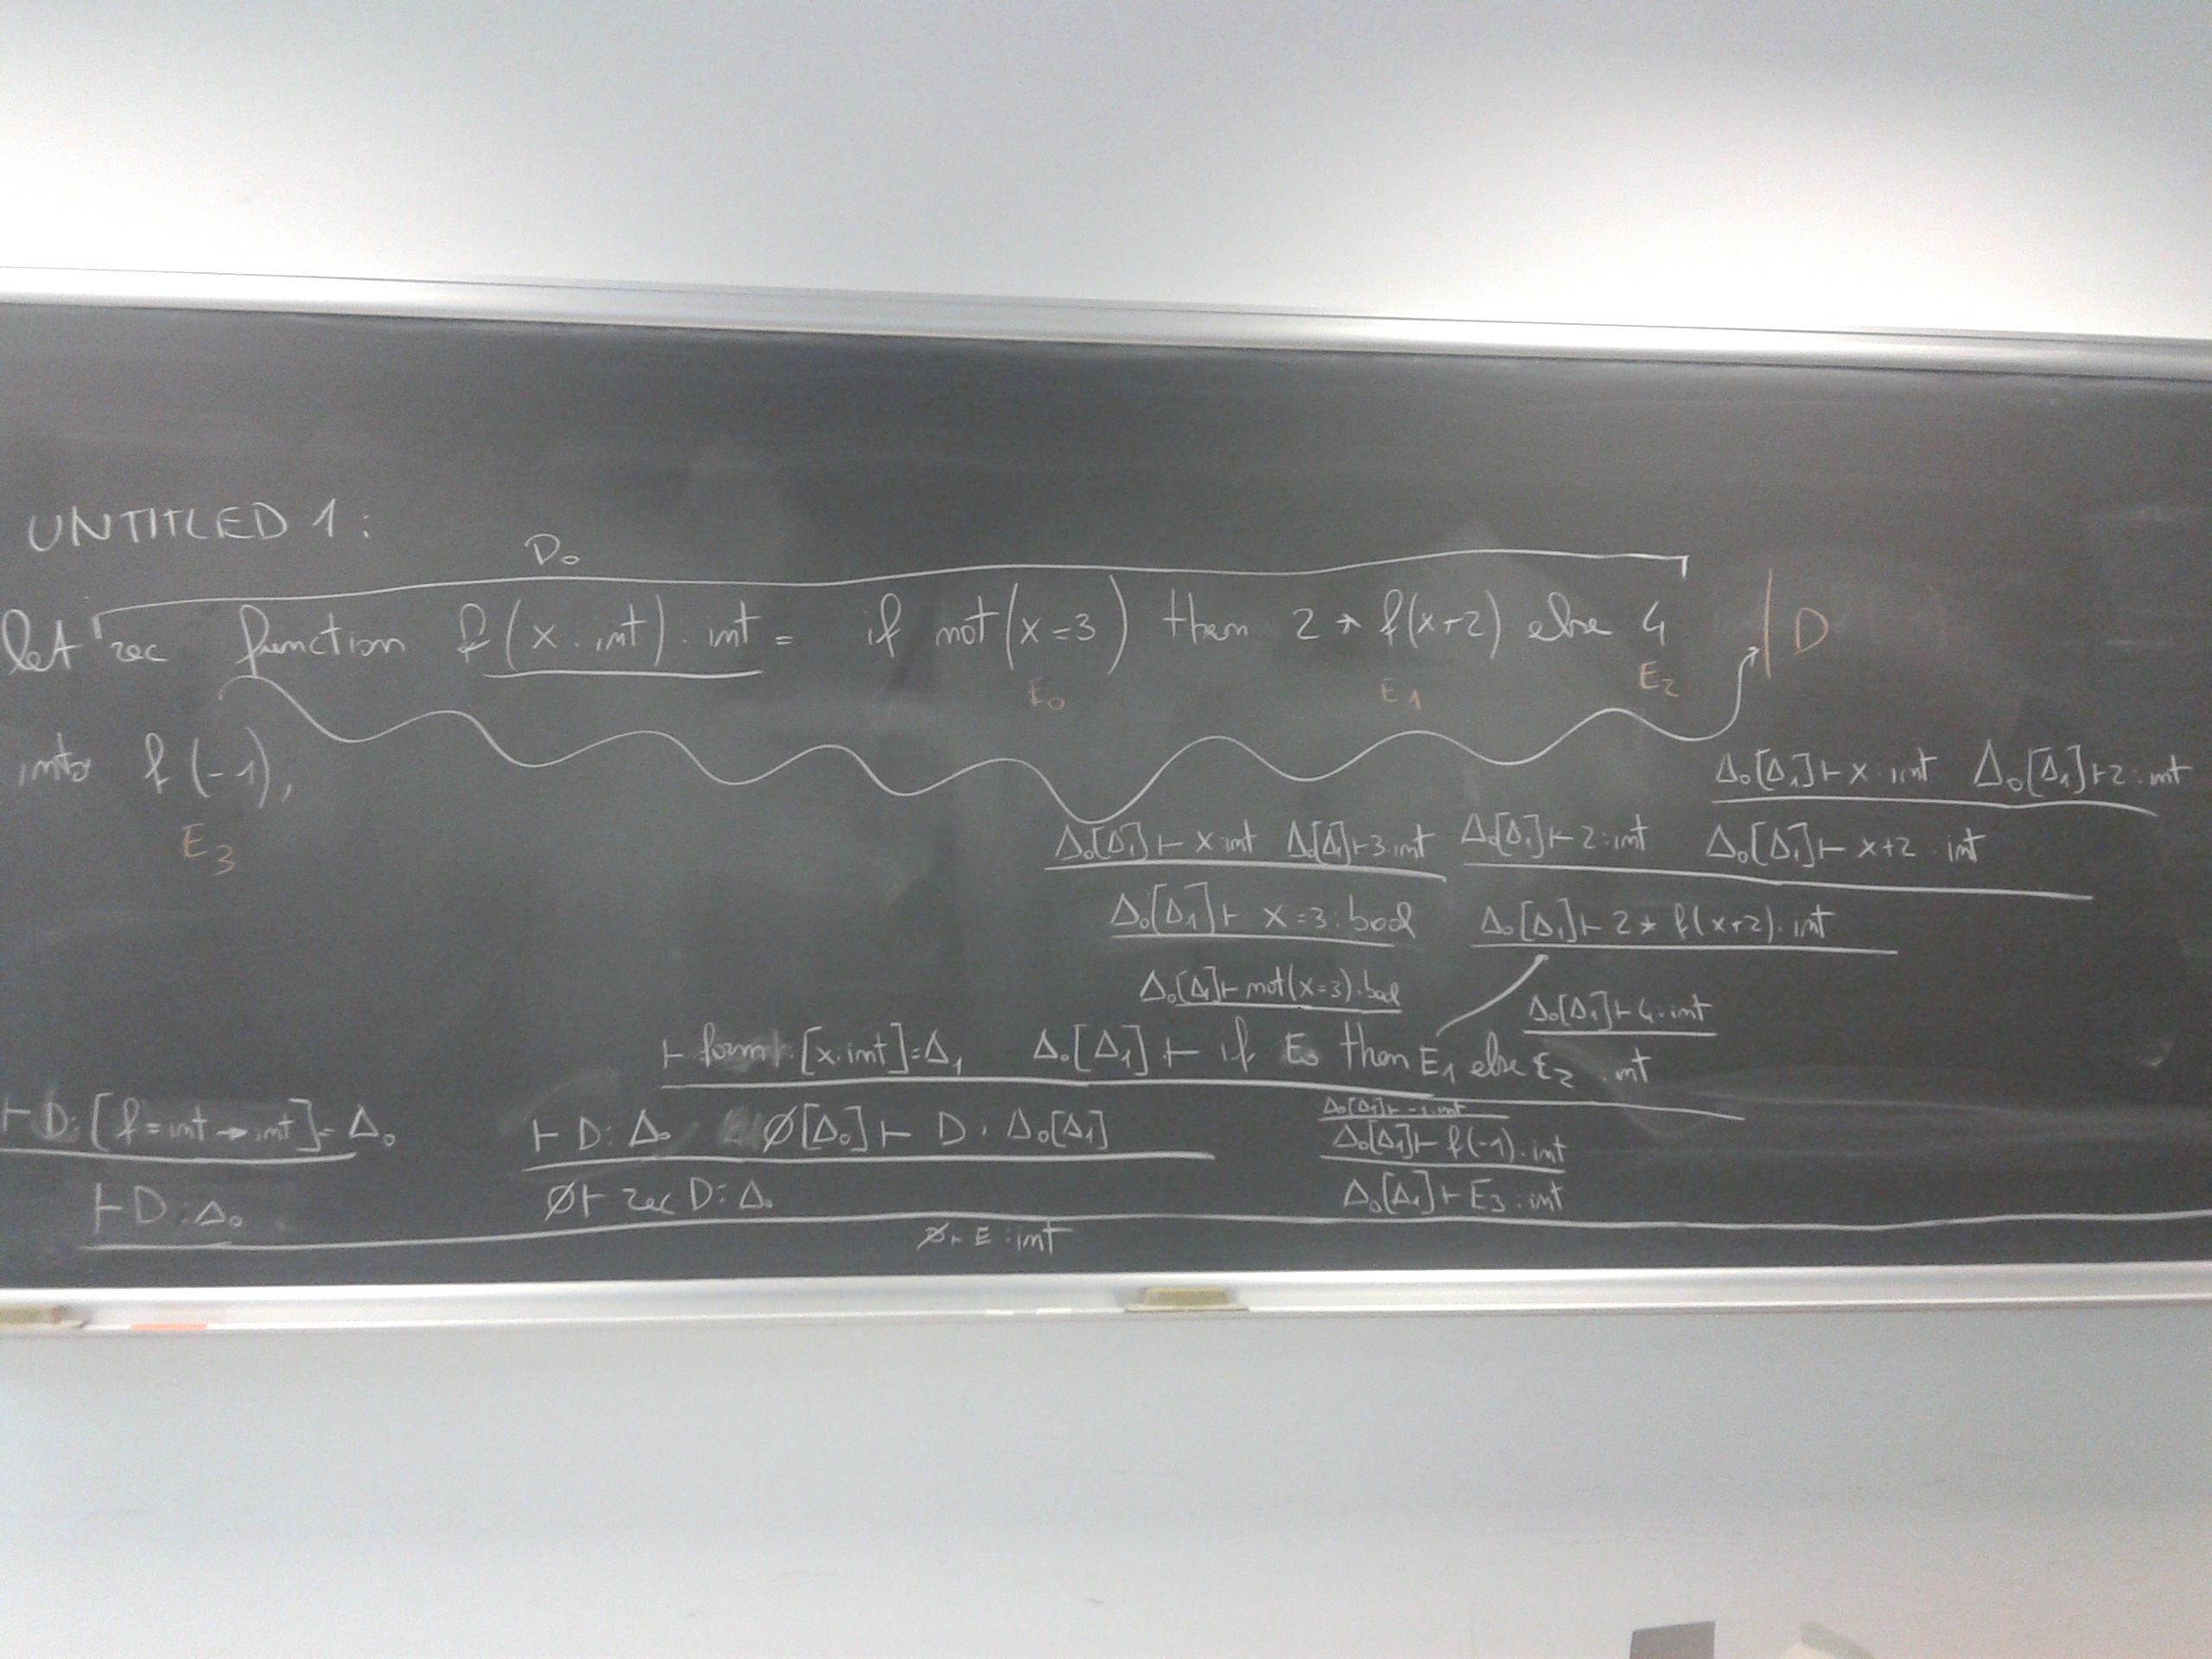 UNTITLED 1:
D₀
let rec function f(x:int):int = if not(x=3) then 2 * f(x+2) else 4 | D
E₀ E₁ E₂
into f(-1),
E₃
Δ₀[Δ₁]⊢x:int Δ₀[Δ₁]⊢2:int
Δ₀[Δ₁]⊢x:int Δ₀[Δ₁]⊢3:int Δ₀[Δ₁]⊢2:int Δ₀[Δ₁]⊢x+2:int
Δ₀[Δ₁]⊢x=3:bool Δ₀[Δ₁]⊢2*f(x+2):int
Δ₀[Δ₁]⊢not(x=3):bool Δ₀[Δ₁]⊢4:int
⊢form:[x:int]=Δ₁ Δ₀[Δ₁]⊢if E₀ then E₁ else E₂:int
Δ₀[Δ₁]⊢-1:int
⊢D:[f=int→int]=Δ₀ ⊢D:Δ₀ ∅[Δ₀]⊢D:Δ₀[Δ₁] Δ₀[Δ₁]⊢f(-1):int
⊢D:Δ₀ ∅⊢rec D:Δ₀ Δ₀[Δ₁]⊢E₃:int
∅⊢E:int